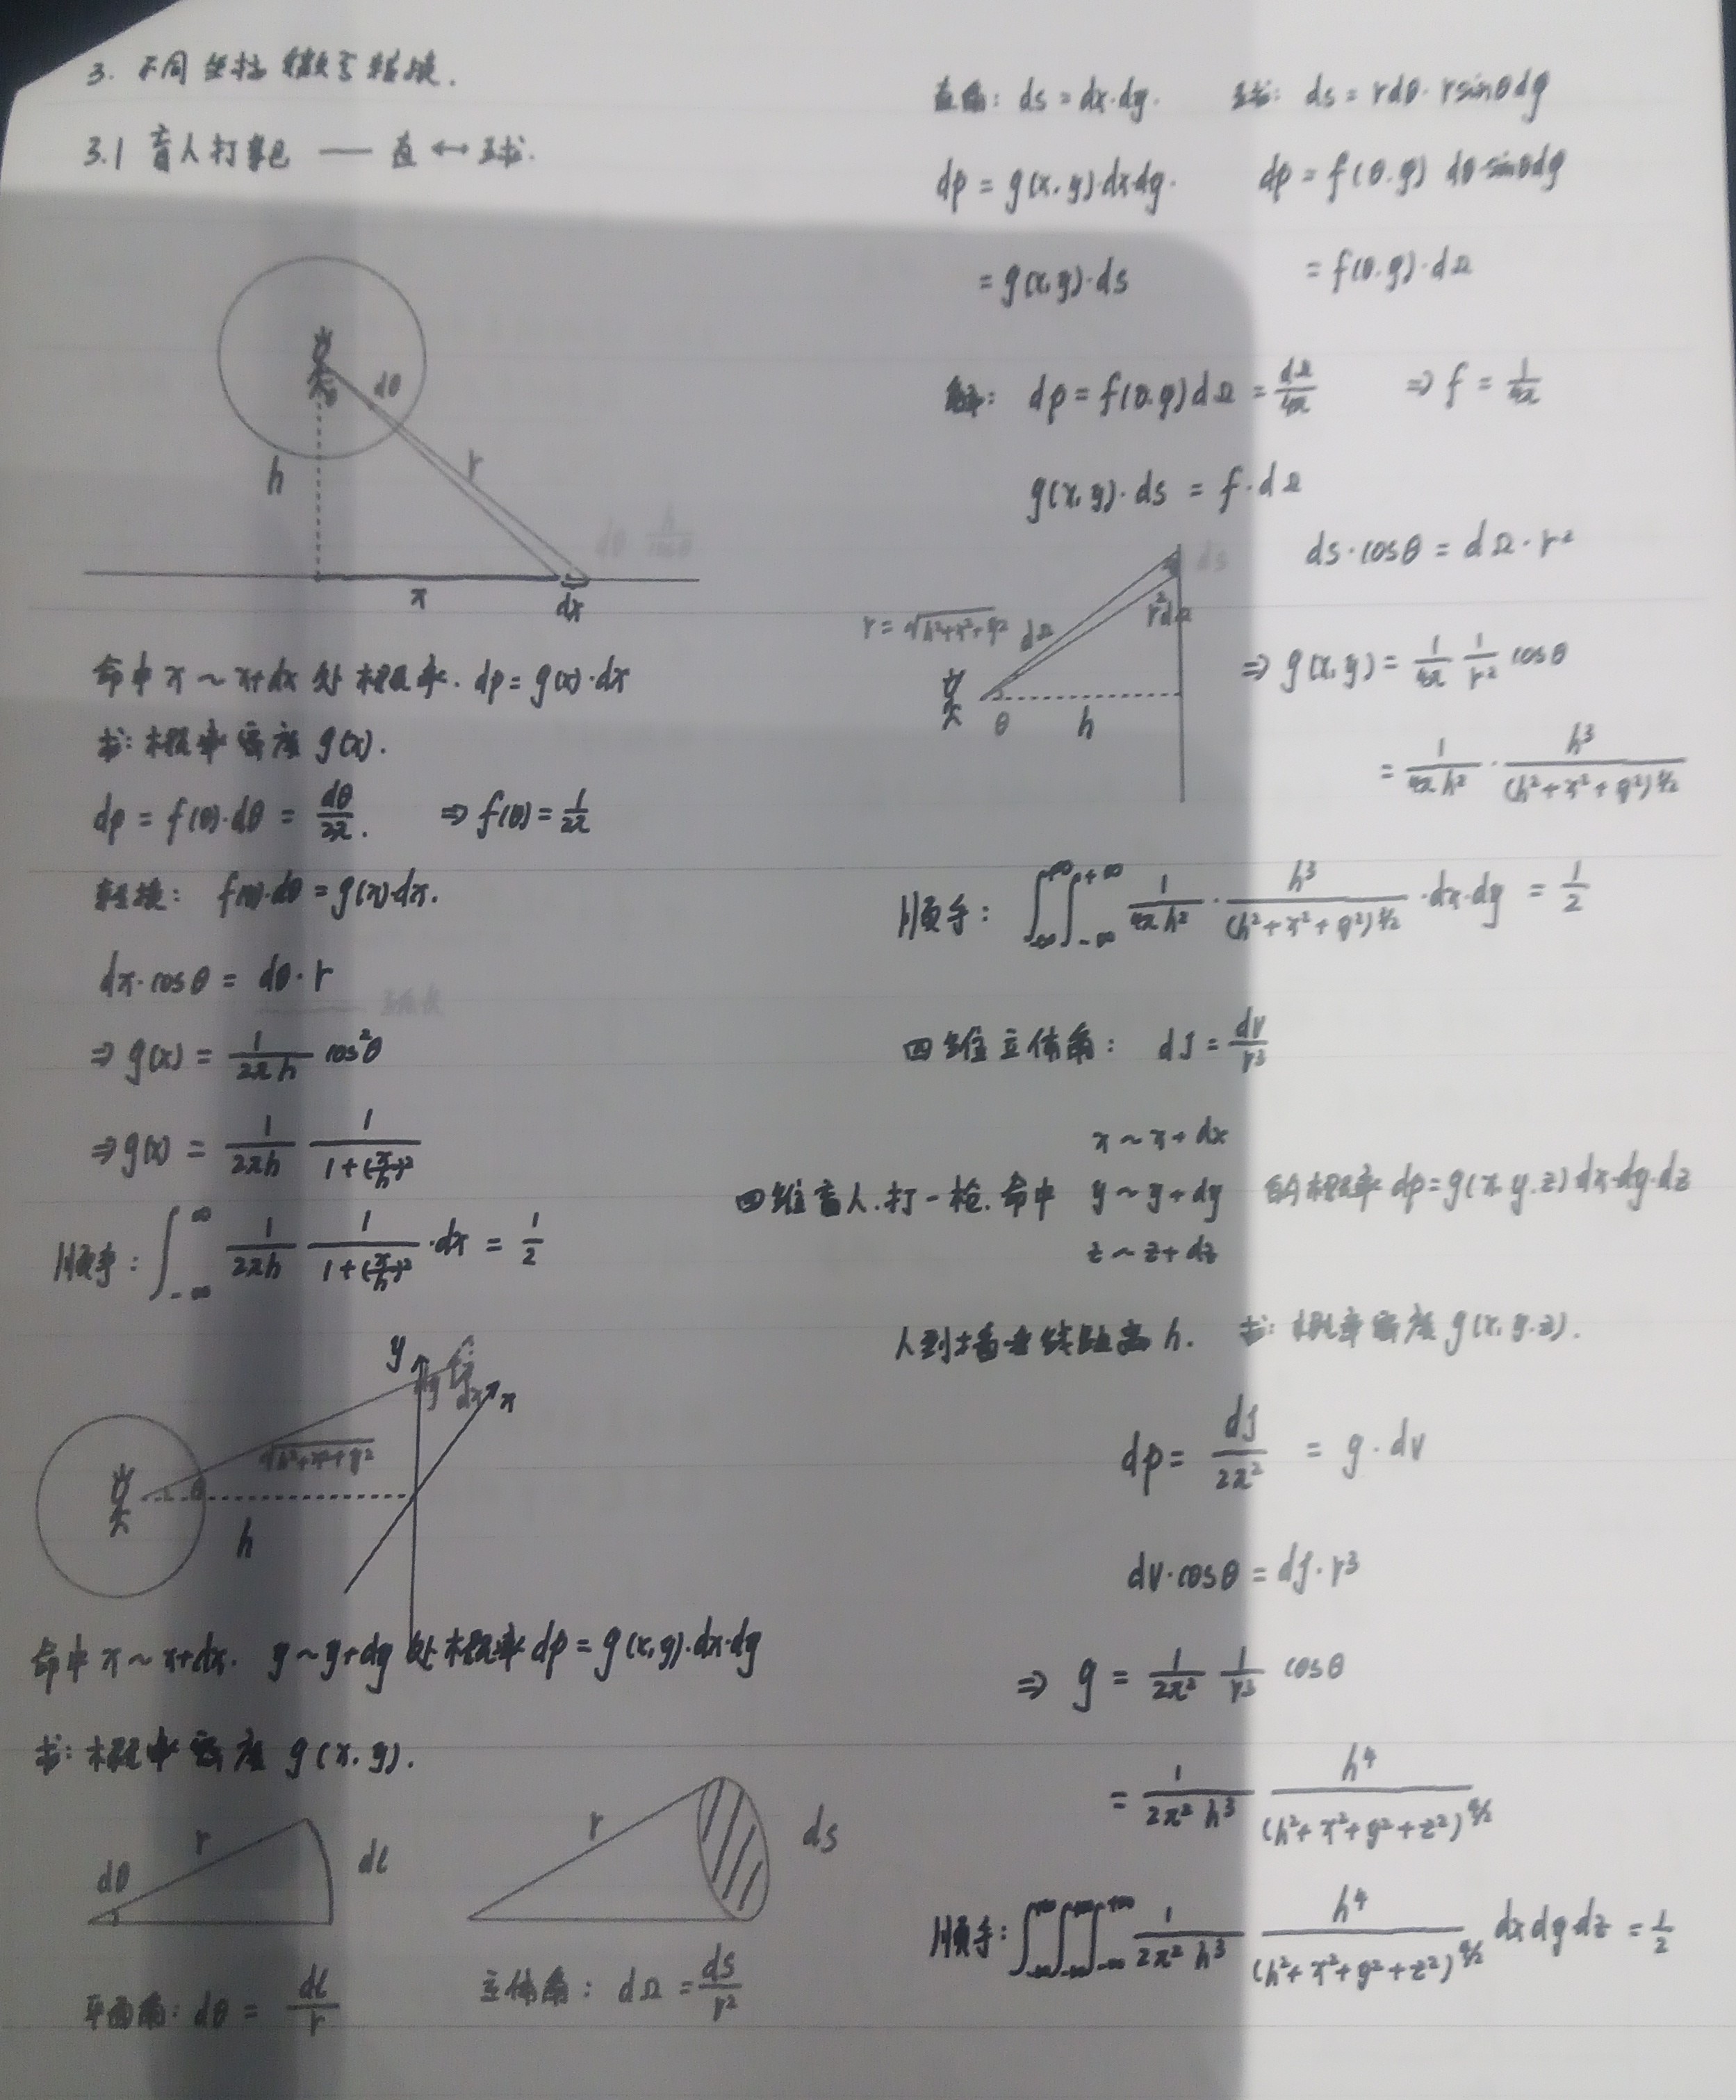 3. 不同坐标微元转换.
3.1 盲人打靶 — 直 ↔ 球.
dθ
θ
h
r
dθ h/cosθ
x
dx
命中 x ~ x+dx 处概率. dp = g(x)·dx
求: 概率密度 g(x).
dp = f(θ)·dθ = dθ/2π. ⇒ f(θ) = 1/2π
转换: f(θ)·dθ = g(x)·dx.
dx·cosθ = dθ·r
⇒ g(x) = 1/(2πh) cos²θ
⇒ g(x) = 1/(2πh) 1/(1+(x/h)²)
顺手: ∫_{-∞}^{∞} 1/(2πh) 1/(1+(x/h)²)·dx = 1/2
y
dy
dx
x
√(h²+x²+y²)
θ
h
命中 x ~ x+dx. y ~ y+dy 处概率 dp = g(x,y)·dx·dy
求: 概率密度 g(x.y).
dθ
r
dl
r
ds
平面角: dθ = dl/r
立体角: dΩ = ds/r²
直角: ds = dx·dy. 球: ds = rdθ·rsinθdφ
dp = g(x,y)·dx·dy. dp = f(θ.φ) dθ·sinθdφ
= g(x,y)·ds = f(θ.φ)·dΩ
dp = f(θ.φ)dΩ = dΩ/4π ⇒ f = 1/4π
g(x,y)·ds = f·dΩ
ds·cosθ = dΩ·r²
ds
r²dΩ
r = √(h²+x²+y²)
dΩ
θ
h
⇒ g(x,y) = 1/4π 1/r² cosθ
= 1/(4πh²) · h³/(h²+x²+y²)^{3/2}
顺手: ∫_{-∞}^{+∞}∫_{-∞}^{+∞} 1/(4πh²) · h³/(h²+x²+y²)^{3/2} ·dx·dy = 1/2
四维立体角: dJ = dv/r³
x ~ x+dx
四维盲人.打一枪.命中 y ~ y+dy 的概率 dp = g(x.y.z)dx·dy·dz
z ~ z+dz
人到墙垂线距离 h. 求: 概率密度 g(x.y.z).
dp = dJ/2π² = g·dv
dv·cosθ = dJ·r³
⇒ g = 1/2π² 1/r³ cosθ
= 1/(2π² h³) h⁴/(h²+x²+y²+z²)^{4/2}
顺手: ∫_{-∞}^{+∞}∫_{-∞}^{+∞}∫_{-∞}^{+∞} 1/(2π² h³) h⁴/(h²+x²+y²+z²)^{4/2} dx dy dz = 1/2